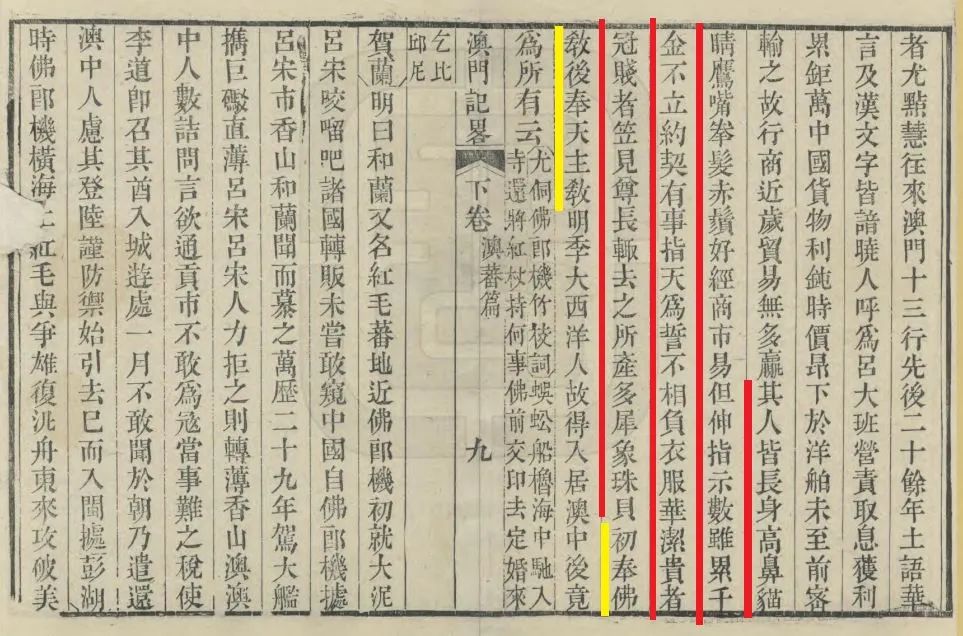 者尤點慧往來澳門十三行先後二十餘年土語華
言及漢文字皆諳曉人呼爲呂大班營責取息獲利
累鉅萬中國貨物利鈍時價昂下於洋舶未至前密
輸之故行商近歲貿易無多贏其人皆長身高鼻貓
睛鷹嘴拳髮赤鬚好經商市易但伸指示數雖累千
金不立約契有事指天爲誓不相負衣服華潔貴者
冠賤者笠見尊長輒去之所產多犀象珠貝初奉佛
敎後奉天主敎明季大西洋人故得入居澳中後竟
爲所有云
尤侗佛郎機竹枝詞蜈蚣船櫓海中馳入
寺還將紅杖持何事佛前交印去定婚來
澳門記畧
下卷
澳蕃篇
九
乞比
邱尼
賀蘭明曰和蘭又名紅毛蕃地近佛郎機初就大泥
呂宋咬𠺕吧諸國轉販未嘗敢窺中國自佛郎機據
呂宋市香山和蘭聞而慕之萬歷二十九年駕大艦
攜巨礮直薄呂宋呂宋人力拒之則轉薄香山澳澳
中人數詰問言欲通貢市不敢爲寇當事難之稅使
李道卽召其酋入城遊處一月不敢聞於朝乃遣還
澳中人慮其登陸謹防禦始引去巳而入閩據彭湖
時佛郎機橫海上紅毛與爭雄復汎舟東來攻破美